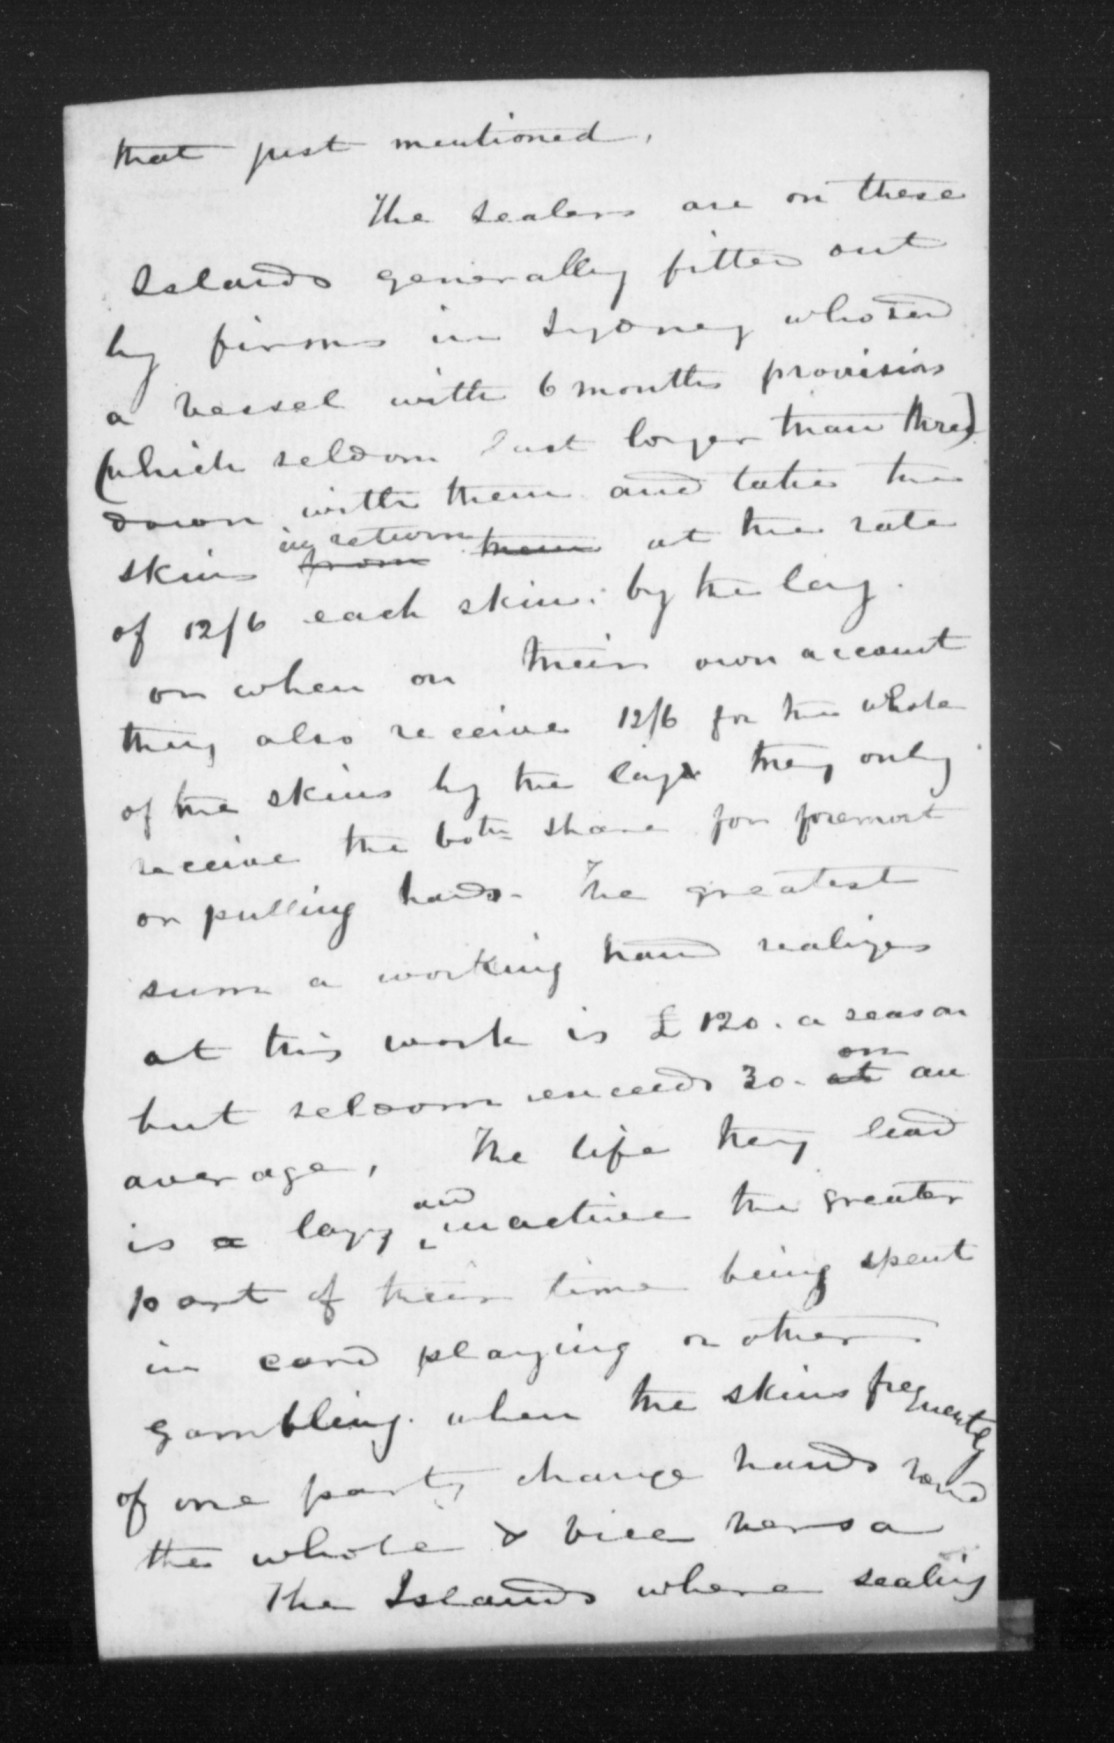 that just mentioned.
The sealers are on these
Islands generally fitted out
by firms in Sydney who send
a vessel with 6 months provisions
(which seldom last longer than three)
down with them and takes the
skins in return from them at the rate
of 12/6 each skin. by the lay.
or when on their own account
they also receive 12/6 for the whole
of the skins by the lay they only
receive the 60th share for foremost
or pulling hands. The greatest
sum a working hand realizes
at this work is £120. a season
but seldom exceeds 30. at on an
average, The life they lead
is a lazy and inactive the greater
part of their time being spent
in card playing or other
gambling. when the skins frequently
of one party change hands
the whole & vice versa
The Islands where sealing